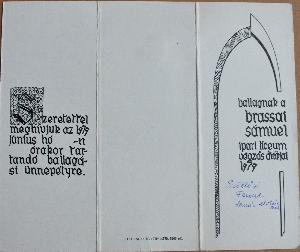 Szeretettel
meghívjuk az 1979
június hó -n
órakor tar-
tandó ballagá-
si ünnepélyre.
ballagnak a
brassai
sámuel
ipari líceum
végzős diákjai
1979